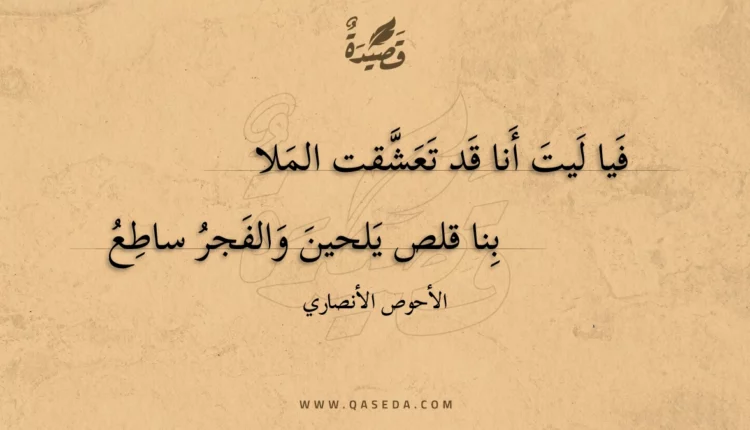 قَصِيدَةٌ
فَيا لَيتَ أَنا قَد تَعَشَّقت المَلا
بِنا قلص يَلحينَ وَالفَجرُ ساطِعُ
الأحوص الأنصاري
WWW.QASEDA.COM